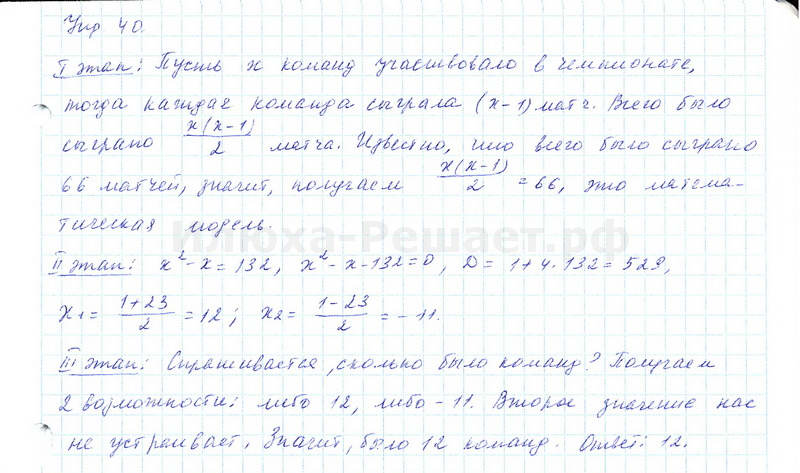 Упр 40.
I этап: Пусть x команд участвовало в чемпионате,
тогда каждая команда сыграла (x-1) матч. Всего было
сыграно x(x-1)/2 матча. Известно, что всего было сыграно
66 матчей, значит, получаем x(x-1)/2 = 66, это матема-
тическая модель.
Илюха-Решает.рф
II этап: x²-x=132, x²-x-132=0, D=1+4·132=529,
x₁= (1+23)/2 =12; x₂= (1-23)/2 =-11.
III этап: Спрашивается, сколько было команд? Получаем
2 возможности: либо 12, либо -11. Второе значение нас
не устраивает. Значит, было 12 команд. Ответ: 12.